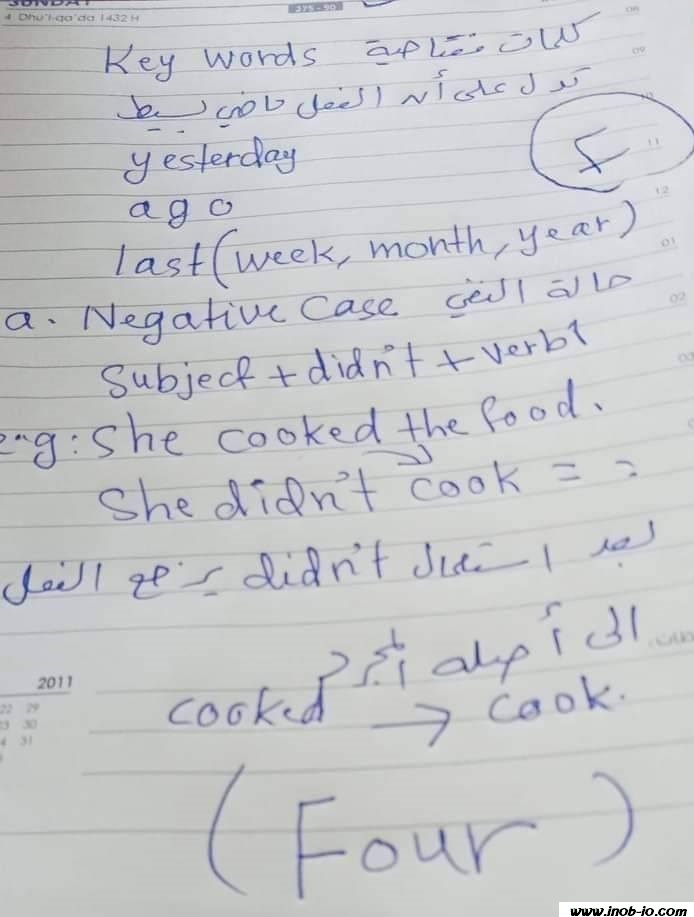 SUNDAY
4 Dhu'l-qa'da 1432 H
275 - 90
08
Key words كلمات مفتاحية
09
تدل على أن الفعل ماضي بسيط
10
yesterday
٤
11
ago
12
last (week, month, year)
01
a. Negative Case حالة النفي
02
Subject + didn't + verb1
03
e.g: She cooked the food.
She didn't cook = =
بعد استعمال didn't يرجع الفعل
الى أصله أي
cooked → cook.
2011
22 29
23 30
24 31
(Four)
www.inob-io.com